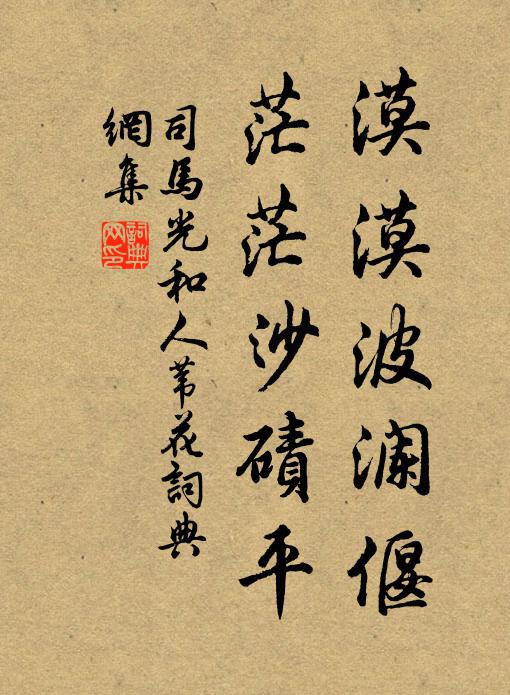 漠漠波澜偃
茫茫沙磧平
司馬光和人苇花詞典
網集
詞典
网印